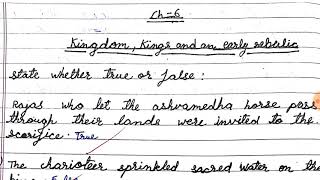 Ch=6
Kingdom, Kings and an early republic
state whether true or false:
Rajas who let the ashvamedha horse pass
through their lands were invited to the
sacrifice. True
The charioteer sprinkled sacred water on the